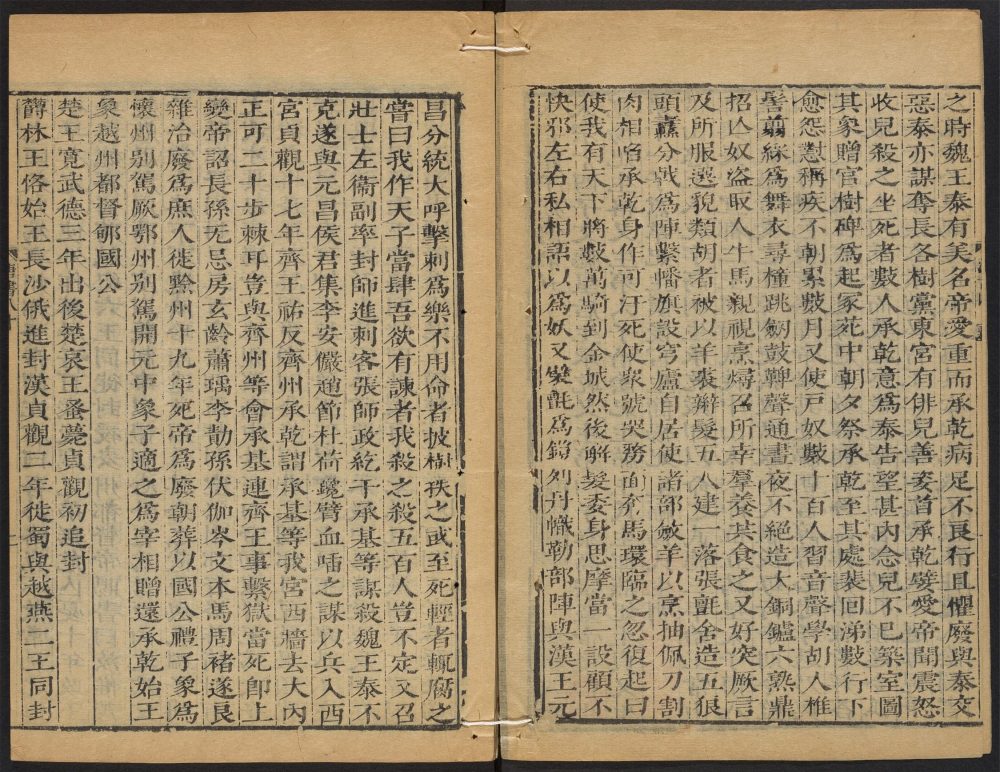 之時魏王泰有美名帝愛重而承乾病足不良行且懼廢與泰交
惡泰亦謀奪長各樹黨東宮有俳兒善姿首承乾嬖愛帝聞震怒
收兒殺之坐死者數人承乾意為泰告望甚內念兒不已築室圖
其象贈官樹碑為起冢死中朝夕祭承乾至其處裴回涕數行下
愈怨懟稱疾不朝累數月又使戶奴數十百人習音聲學胡人椎
髻翦綵為舞衣尋橦跳劒鼓鞞聲通晝夜不絕造大銅鑪六熟鼎
招亡奴盜取人牛馬親視烹燖召所幸羣養共食之又好突厥言
及所服選貌類胡者被以羊裘辮髮五人建一落張氈舍造五狼
頭纛分戟為陣繫幡旗設穹廬自居使諸部斂羊以烹抽佩刀割
肉相啗承乾身作可汗死使衆號哭剺面奔馬環臨之忽復起曰
使我有天下將數萬騎到金城然後解髮委身思摩當一設顧不
快邪左右私相語以為妖又襞氈為鎧列丹幟勒部陣與漢王元
昌分統大呼擊刺為樂不用命者披樹抶之或至死輕者輒腐之
嘗曰我作天子當肆吾欲有諫者我殺之殺五百人豈不定又召
壯士左衞副率封師進刺客張師政紇干承基等謀殺魏王泰不
克遂與元昌侯君集李安儼趙節杜荷鑱臂血㗖之謀以兵入西
宮貞觀十七年齊王祐反齊州承乾謂承基等我宮西牆去大內
正可二十步棘耳豈與齊州等會承基連齊王事繫獄當死卽上
變帝詔長孫无忌房玄齡蕭瑀李勣孫伏伽岑文本馬周褚遂良
雜治廢為庶人徙黔州十九年死帝為廢朝葬以國公禮子象為
懷州別駕厥鄂州別駕開元中象子適之為宰相贈還承乾始王
象越州都督郇國公
楚王寬武德三年出後楚哀王蚤薨貞觀初追封
欝林王恪始王長沙俄進封漢貞觀二年徙蜀與越燕二王同封